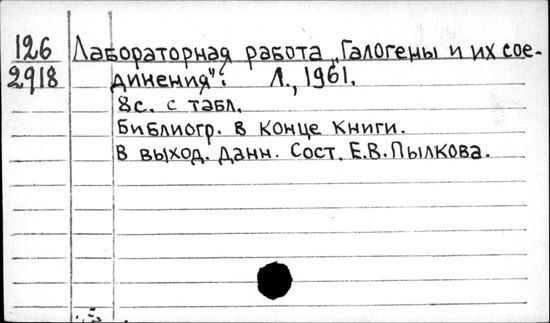 126
2918
Лабораторная работа „Галогены и их сое-
динения": Л., 1961.
8с. с табл.
Библиогр. в конце книги.
В выход. данн. Сост. Е.В.Пылкова.